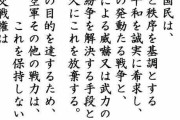 国民は、
と秩序を基調とする
平和を誠実に希求し、
の発動たる戦争と、
る威嚇又は武力の
紛争を解決する手段と
久にこれを放棄する。
の目的を達するため、
空軍その他の戦力は、
これを保持しない
交戦権は